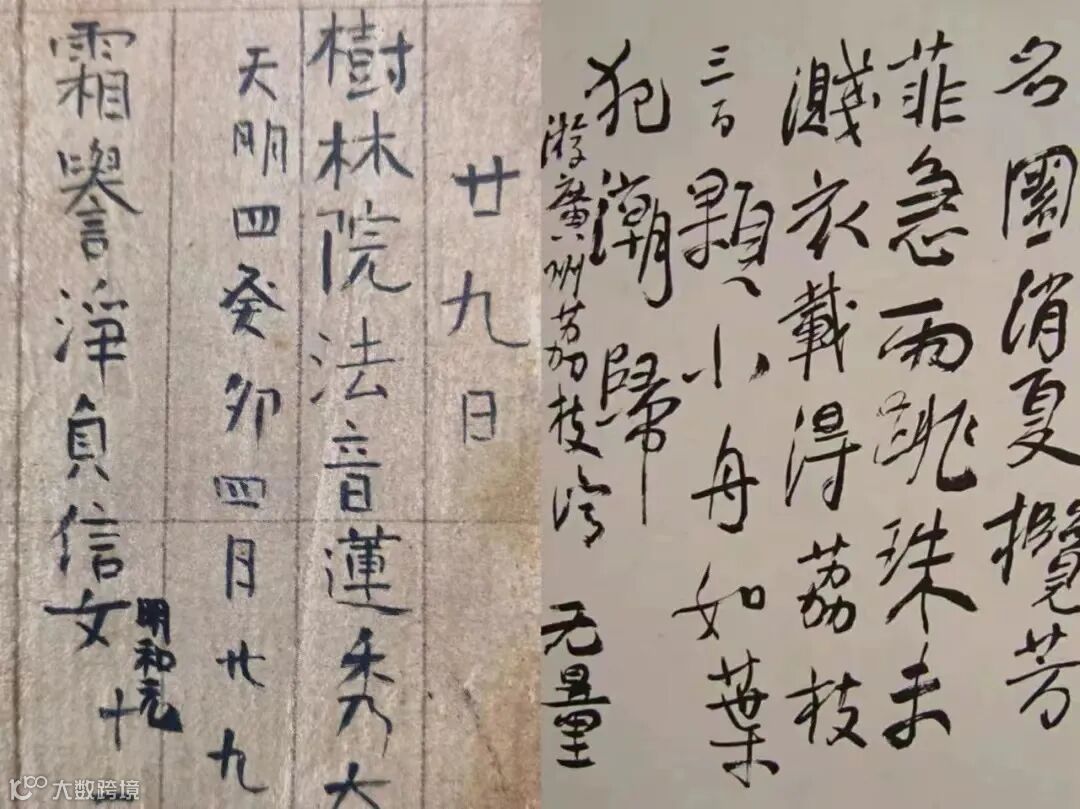 廿九日
樹林院法音蓮秀大
天明四癸卯四月廿九
霜譽淨貞信女
明和元
十
名園消夏攬芳
菲急雨跳珠未
濺衣載得荔枝
三百顆小舟如葉
犯潮歸
游廣州荔枝灣 无量
大数跨境